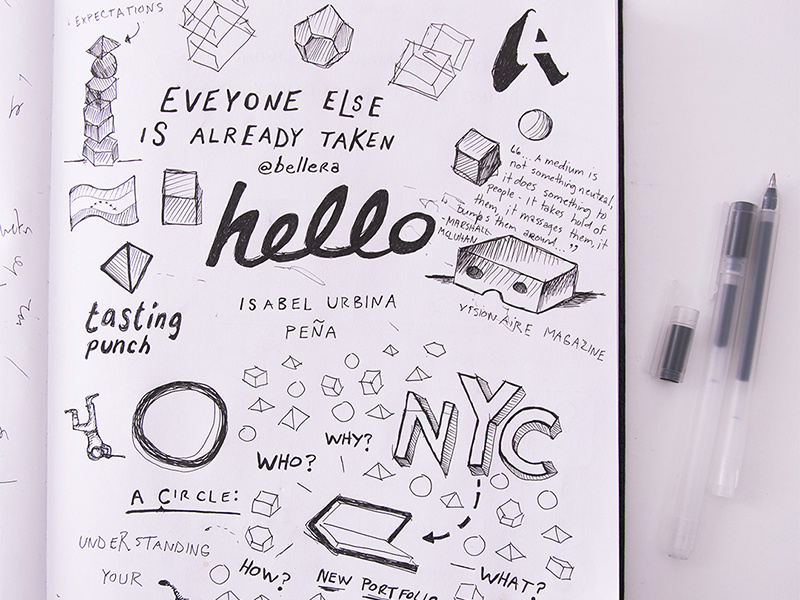 EXPECTATIONS
A
EVEYONE ELSE
IS ALREADY TAKEN
@bellera
hello
"... A medium is
not something neutral,
it does something to
people. It takes hold of
them, it massages them, it
bumps them around..."
- MARSHALL
MCLUHAN
ISABEL URBINA
PEÑA
VISIONAIRE MAGAZINE
tasting
punch
NYC
WHY?
WHO?
A CIRCLE:
UNDERSTANDING
YOUR
HOW?
NEW PORTFOLIO
WHAT?